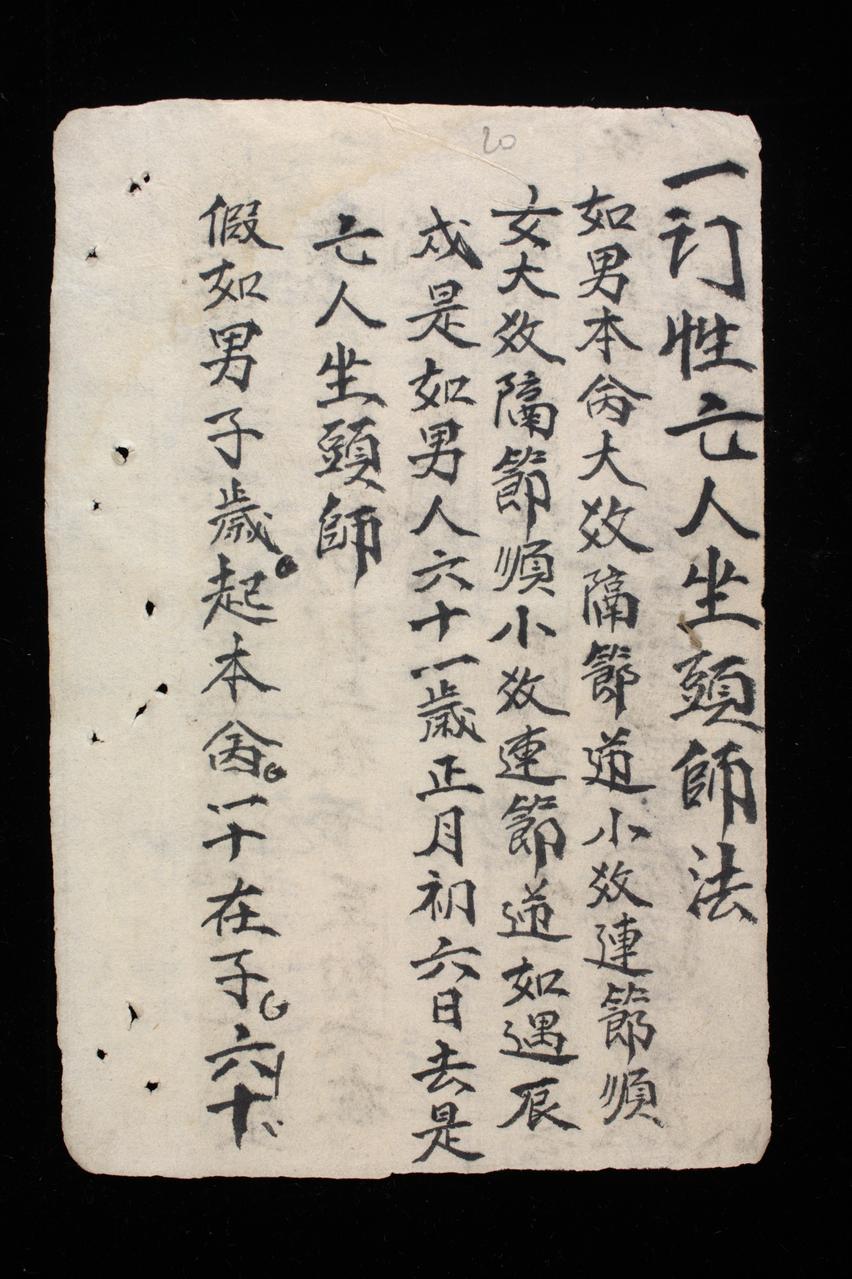 一订性亡人坐頭師法
如男本肏大效隔節逆小效連節順
女大效隔節順小效連節逆如遇辰
戍是如男人六十一歲正月初六日去是
亡人坐頭師
假如男子歲起本肏一十在子六十
20